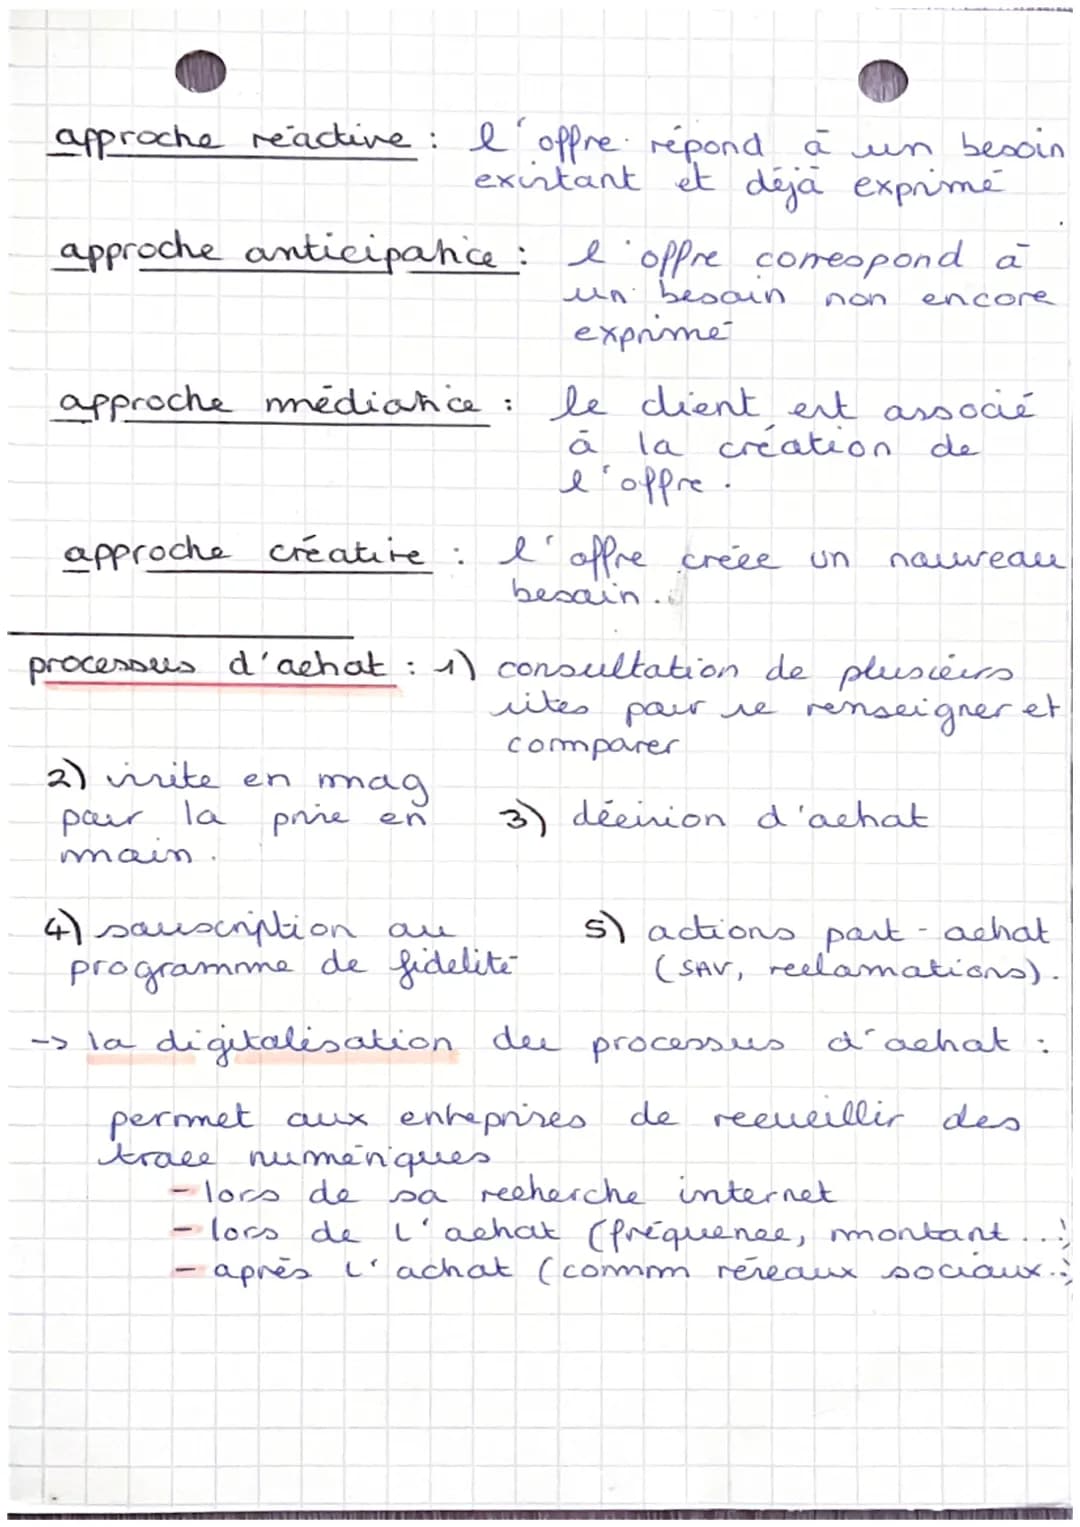 approche réactive : l'offre répond à un besoin
existant et déjà exprimé
approche anticipatrice : l'offre correspond à
un besoin non encore
exprimé
approche médiatrice : le client est associé
à la création de
l'offre.
approche créative : l'offre créée un nouveau
besoin.
processus d'achat : 1) consultation de plusieurs
sites pour se renseigner et
comparer
2) visite en mag
pour la prise en
main.
3) décision d'achat
4) souscription au
programme de fidelité
5) actions post-achat
(SAV, reclamations).
-> la digitalisation du processus d'achat :
permet aux entreprises de recueillir des
trace numériques
- lors de sa recherche internet
- lors de l'achat (fréquence, montant...)
- après l'achat (comm réseaux sociaux..)